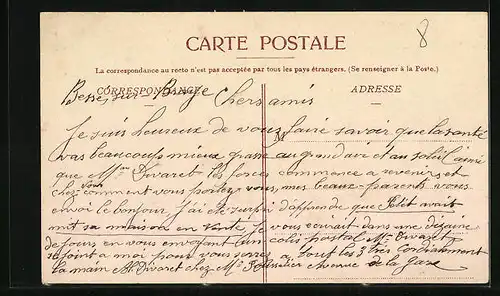 8
CARTE POSTALE
La correspondance au recto n'est pas acceptée par tous les pays étrangers. (Se renseigner à la Poste.)
CORRESPONDANCE
ADRESSE
Besse sur Chers amis
Je suis heureux de vous faire savoir que la santé
vas beaucoup mieux grasse au grand air et au soleil ainsi
que Mme Divaret les forces commance a revenir et
chez vous comment vous portez vous, mes beaux-parents vous
envoi le bonjour J'ai été surpri d'apprendre que Petit avait
mit sa maison en vente je vous écrirait dans une dizaine
de jours en vous envoyant un colis postal Mme Divaret
se joint a moi pour vous serrer a tout les 3 très cordialement
la main M. Divaret chez M. avenue de la gare